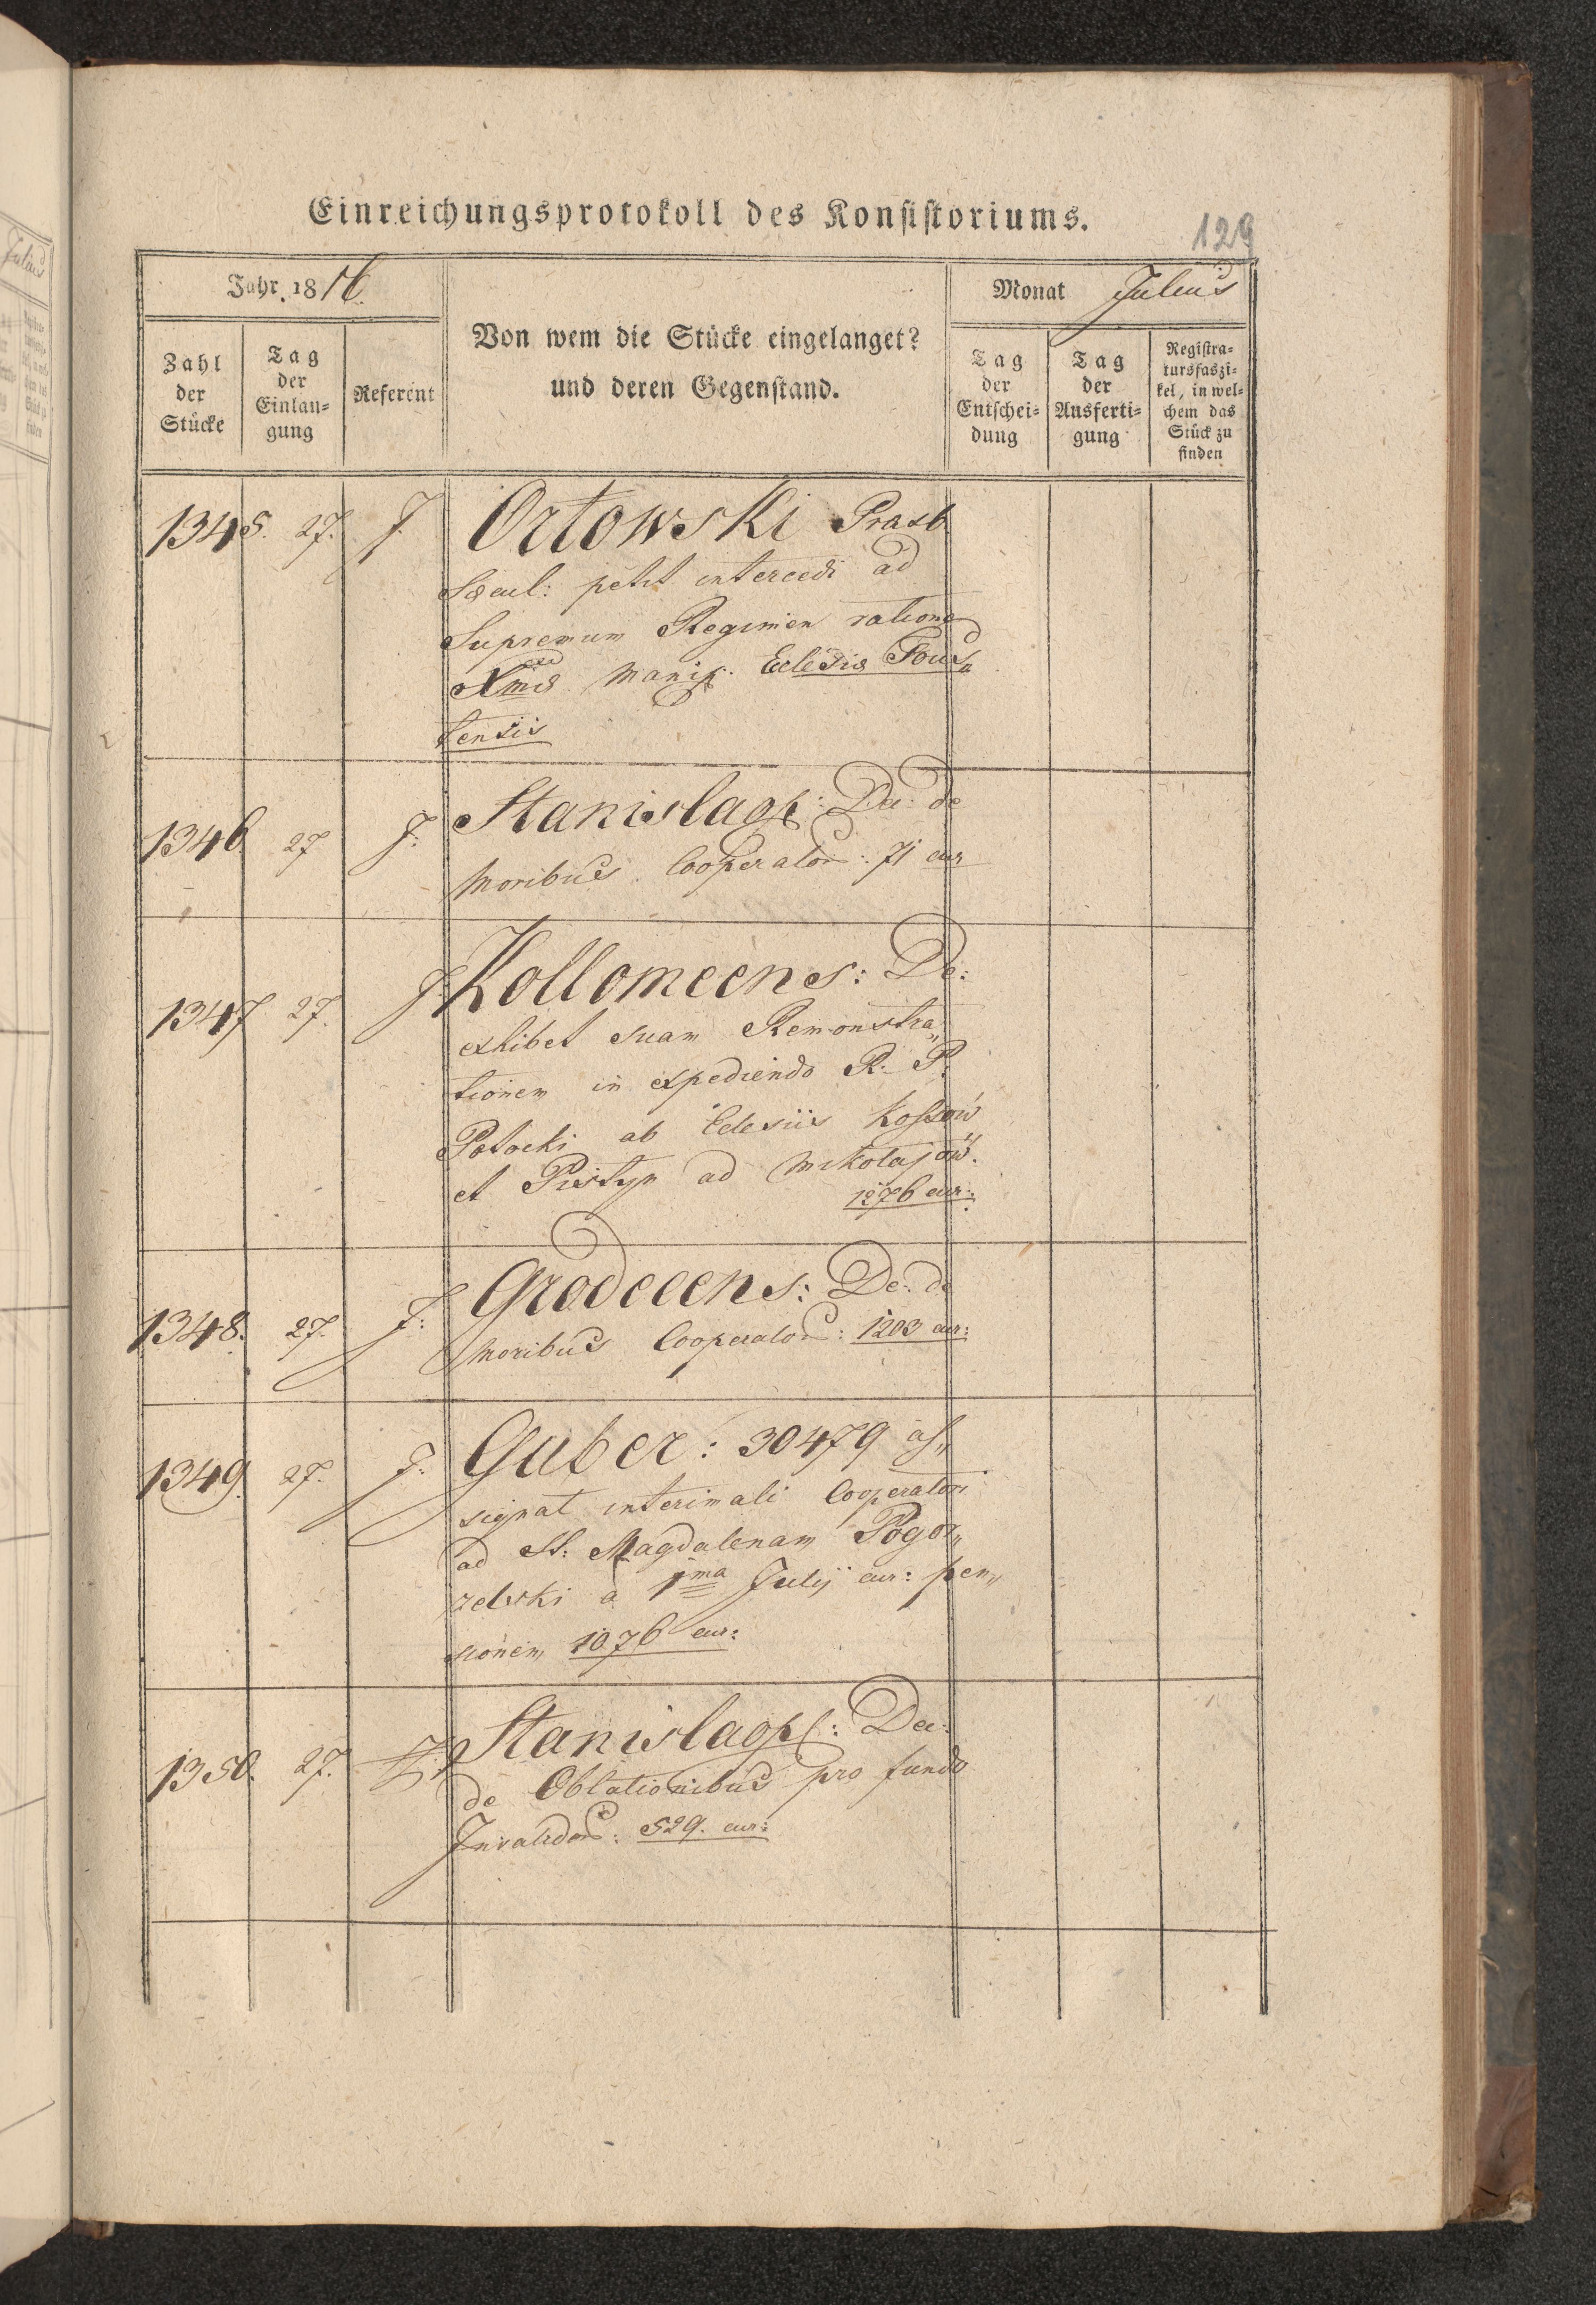 Einreichungsprotokoll des Konsistoriums.
129
Jahr 1816.
Monat Julius
Zahl der Stücke
Tag der Einlan= gung
Referent
Von wem die Stücke eingelanget?
und deren Gegenstand.
Tag der Entschei= dung
Tag der Ausferti= gung
Registra= tursfaszi= kel, in wel= chem das Stück zu finden
1345. 27. J. Ortowski Prasb
Saecul: petit intercedi ad
Supremum Regimen ratione
manip. Eclesia Tous„
tensis
1346. 27 J: Stanislaop: De: de
moribus Cooperator: 71 cur
1347 27. J: Kollomeens: De:
exhibet suam Remonstra„
tionem in expediendo R. P.
Potocki ab Eclesiis Kossow
et Pistyn ad Mikotajow.
1276 cur:
1348. 27. J: Grodecens: De: de
moribus Cooperator: 1203 cur:
1349. 27. J: Guber: 30479 as„
signat interimali Cooperatori
ad St: Magdalenam Pogor„
zelski a 1ma Julij cur: pen„
sionem 1076 cur:
1350. 27. Stanislaop: De:
de Oblationibus pro fundo
Invalidor: 529. cur: